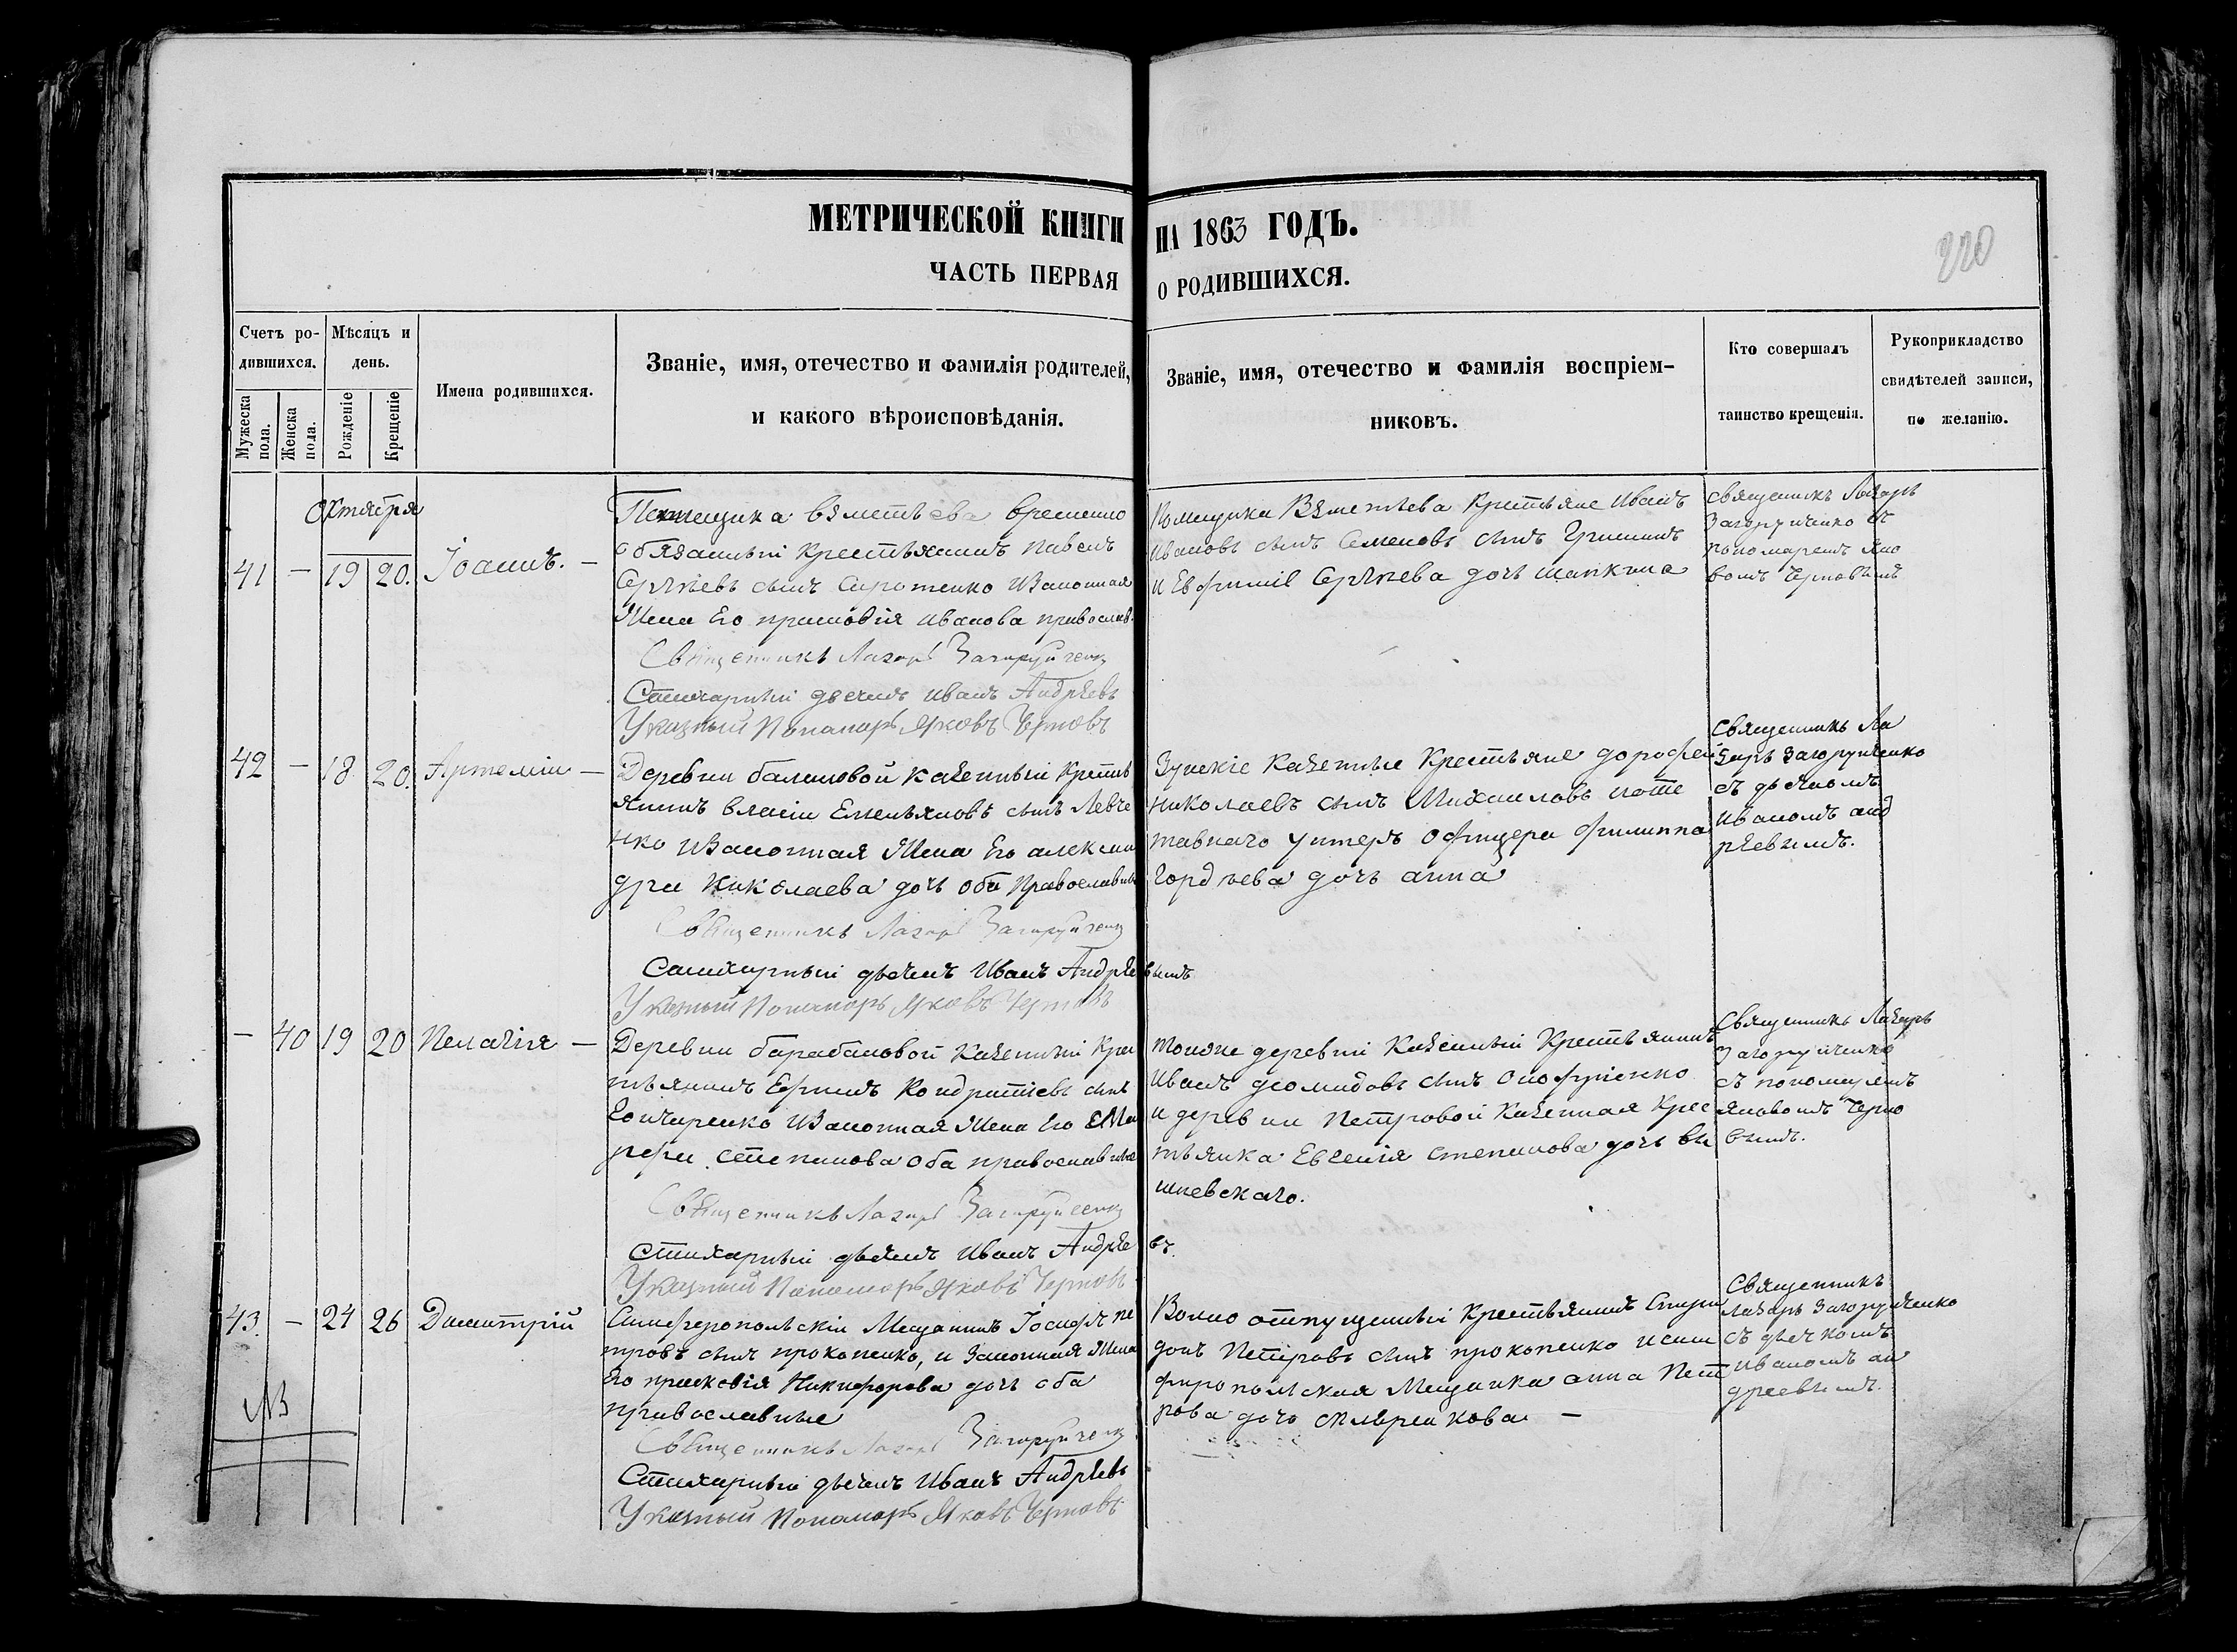 МЕТРИЧЕСКОЙ КНИГИ НА 1863 ГОДЪ.
ЧАСТЬ ПЕРВАЯ О РОДИВШИХСЯ.
220
Счетъ ро-
дившихся.
Мужеска пола.
Женска пола.
Мѣсяцъ и
день.
Рожденіе
Крещеніе
Имена родившихся.
Званіе, имя, отечество и фамилія родителей,
и какого вѣроисповѣданія.
Званіе, имя, отечество и фамилія воспріем-
никовъ.
Кто совершалъ
таинство крещенія.
Рукоприкладство
свидѣтелей записи,
по желанію.
Октября
41 — 19 20. Іоаннъ. —
Помещика временно
обязанный Крестьянинъ Павелъ
Сергѣевъ сынъ Сиротенко Изаконная
Жена Его Иванова православ.
Священникъ Лазарь Загоруйченко
Стихарный дьячекъ Иванъ Андрѣевъ
Указный Понамарь Яковъ Чертовъ
Помещика Крестьяне Иванъ
Ивановъ сынъ Семеновъ сынъ Гришинъ
и Сергѣева дочь Шапкина
священникъ Лазарь
Загоруйченко съ
пономаремъ Яко
вомъ
42 — 18 20. Артемій —
Деревни Балиновой казенный Крестья
янинъ Власій Емельяновъ сынъ Левче
нко Изаконная Жена Его алексан
дра Николаева дочь оба Православные
Священникъ Лазарь Загоруйченко
Стихарный дьячекъ Иванъ Андрѣевымъ
Указный Понамарь Яковъ Чертовъ
Зуйскіе Казенные Крестьяне дорофей
николаевъ сынъ Михаиловъ иотс
тавнаго унтеръ Офицера филиппа
Гордѣева дочь анна
Священникъ Ла
зарь Загоруйченко
съ дьячкомъ
Иваномъ анд
рѣевымъ.
— 40 19 20 Пелагія —
Деревни барабановой Казенный Крес
тьянинъ Ефимъ Кондратіевъ сынъ
Гончаренко Изаконная Жена Его
Степанова оба православные
Священникъ Лазарь Загоруйченко
стихарный дьячекъ Иванъ Андрѣевъ
Указный Понамарь Яковъ Чертовъ
тойже деревни Казенный Крестьянинъ
Иванъ деомидовъ сынъ Онофріенко
и деревни Петровой Казенная Крес
тьянка Евгенія степанова дочь ви
шневскаго.
Священникъ Лазарь
Загоруйченко
съ пономаремъ
Яковомъ
вымъ.
43. — 24 26 Димитрій
Симферопольскій Мещанинъ Іосифъ пе
тровъ сынъ прокопенко, и Законная Жена
Его прасковія Никифорова дочь оба
православные
Священникъ Лазарь Загоруйченко
Стихарный дьячекъ Иванъ Андрѣевъ
Указный Понамарь Яковъ Чертовъ
Волно отпущенный Крестьянинъ Спири
донъ Петровъ сынъ прокопенко исим
фиропольская Мещанка анна Пет
рова дочь
Священникъ
Лазарь Загоруйченко
съ дьячкомъ
Иваномъ ан
дреевымъ.